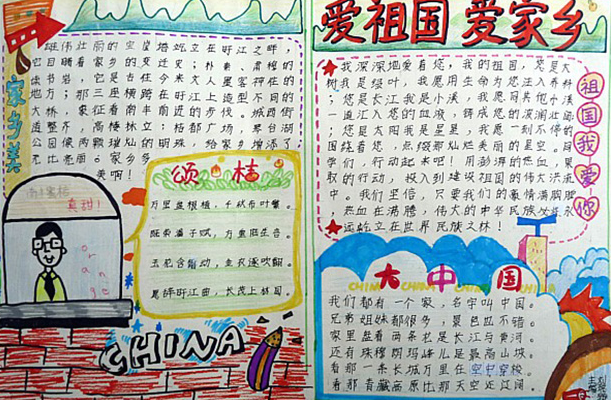 家乡美
雄伟壮丽的宝塔屹立在盱江之畔，
它目睹着家乡的变迁史；朴素、肃穆的
读书岩，它是古往今来文人墨客神往的
地方；那三座横跨在盱江上造型不同的
大桥，象征着南丰前进的步伐。城西街
道整齐，高楼林立；桔都广场、琴台湖
公园像两颗璀灿的明珠，给家乡增添了
无比亮丽。家乡多
美啊！
南丰蜜桔
真甜！
orange
颂桔
万里盘根植，千秋布叶繁。
五花含 动，
CHINA
爱祖国 爱家乡
我深深地爱着您，我的祖国，您是大
树我是绿叶，我愿用生命为您注入养料
；您是长江我是小溪，我愿同其他小溪
一道汇入您的血液，铸成您的波澜壮阔
，您是太阳我是星星，我愿一刻不停的
围绕着您，点缀那灿烂美丽的星空。同
学们，行动起来吧！用澎湃的热血，果
敢的行动，投入到建设祖国的伟大洪流
中。我们坚信，只要我们的豪情满胸膛
，热血在沸腾，伟大的中华民族必将永
远屹立在世界民族之林！
祖国我爱你
大中国
CHINA CHINA CHINA CHINA
我们都有一个家，名字叫中国。
兄弟姐妹都很多，景色也不错。
家里盘着两条龙是长江与黄河。
还有珠穆朗玛峰儿是最高山坡。
看那一条长城万里在空中穿梭
看那青藏高原比那天空还辽阔